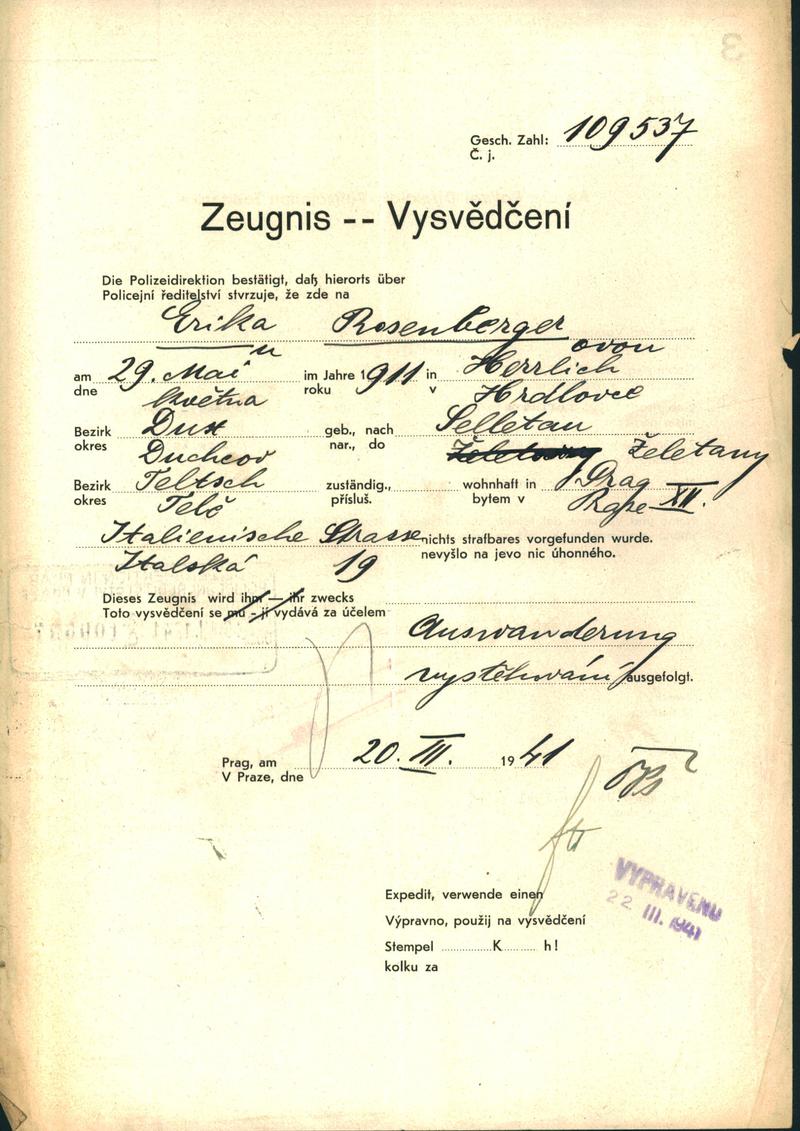 Gesch. Zahl: 109537
Č. j.
Zeugnis -- Vysvědčení
Die Polizeidirektion bestätigt, daß hierorts über
Policejní ředitelství stvrzuje, že zde na
Erika Rosenberger
u ovou
am 29. Mai im Jahre 1911 in Herrlich
dne května roku v Hrdlovce
Bezirk Dux geb., nach Selletau
okres Duchcov nar., do Želetavy Želetavy
Bezirk Teltsch zuständig., wohnhaft in Prag XII.
okres Telč přísluš. bytem v Praze
Italienische Strasse nichts strafbares vorgefunden wurde.
Italská 19 nevyšlo na jevo nic úhonného.
Dieses Zeugnis wird ihm — ihr zwecks
Toto vysvědčení se mu - jí vydává za účelem
Auswanderung
vystěhování ausgefolgt.
Prag, am 20. III. 1941
V Praze, dne
Expedit, verwende einen
Výpravno, použij na vysvědčení
Stempel K h!
kolku za
VYPRAVENO
22 III. 1941
3